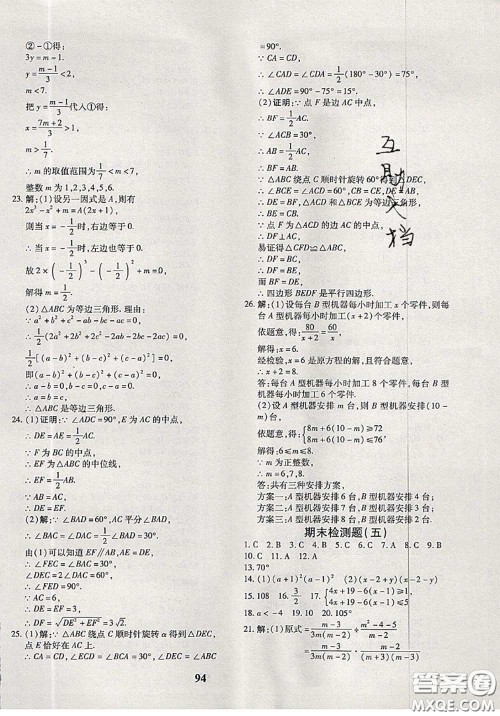 ②-①得:
3y=m-1.
∴ y=\frac{m-1}{3}<2,
m<7.
把 y=\frac{m-1}{3}代入①得:
x=\frac{7m+2}{3}>1,
m>\frac{1}{7}.
∴ m 的取值范围为\frac{1}{7}<m<7,
整数 m 为 1,2,3,4,5,6.
23. 解:(1)设另一因式是 A,则有
2x³-x²+m=A(2x+1),
则当 x=-\frac{1}{2}时,右边等于 0.
∴ 当 x=-\frac{1}{2}时,左边也等于 0.
故 2×(-\frac{1}{2})³-(-\frac{1}{2})²+m=0.
解得 m=\frac{1}{2}.
(2)△ABC 为等边三角形. 理由:
∵ a²+b²+c²=ab+bc+ac,
∴ \frac{1}{2}(2a²+2b²+2c²-2ab-2bc-2ac)=0,
\frac{1}{2}[(a-b)²+(b-c)²+(a-c)²]=0,
即(a-b)²+(b-c)²+(a-c)²=0.
∴ a-b=0,b-c=0,a-c=0,
∴ a=b=c.
∴ △ABC 是等边三角形.
24. (1)证明:∵ ∠ADC=90°,E 为 AC 的中点,
∴ DE=AE=\frac{1}{2}AC.
∵ F 为 BC 的中点,
∴ EF 为 △ABC 的中位线,
∴ EF=\frac{1}{2}AB.
∵ AB=AC,
∴ DE=EF.
(2)解:∵ ∠BAD=60°,AC 平分∠BAD,
∴ ∠BAC=∠DAC=30°.
由(1)可知道 EF∥AB,AE=DE,
∴ ∠FEC=∠BAC=30°,∠DEC=60°,
∴ ∠FED=90°.
∵ AC=6,
∴ DE=EF=3,
∴ DF=\sqrt{DE²+EF²}=3\sqrt{2}.
25. (1)解:∵ △ABC 绕点 C 顺时针旋转 α 得到△DEC,
点 E 恰好在 AC 上.
∴ CA=CD,∠ECD=∠BCA=30°,∠DEC=∠ABC
=90°.
∵ CA=CD,
∴ ∠CAD=∠CDA=\frac{1}{2}(180°-30°)=75°,
∴ ∠ADE=90°-75°=15°.
(2)证明:∵ 点 F 是边 AC 中点,
∴ BF=\frac{1}{2}AC.
∵ ∠ACB=30°,
∴ AB=\frac{1}{2}AC,
∴ BF=AB.
∵ △ABC 绕点 C 顺时针旋转 60°得到△DEC,
∴ ∠BCE=∠ACD=60°,CB=CE,DE=AB,
∴ DE=BF,△ACD 和 △BCE 为等边三角形,
∴ BE=CB.
∵ 点 F 为 △ACD 的边 AC 的中点,
∴ DF⊥AC.
易证得△CFD≌△ABC,
∴ DF=BC,
∴ DF=BE.
∴ 四边形 BEDF 是平行四边形.
26. 解:(1)设每台 B 型机器每小时加工 x 个零件,则每
台 A 型机器每小时加工(x+2)个零件,
依题意,得:\frac{80}{x+2}=\frac{60}{x},
解得:x=6.
经检验,x=6 是原方程的解,且符合题意,
∴ x+2=8.
答:每台 A 型机器每小时加工 8 个零件,每台 B 型
机器每小时加工 6 个零件.
(2)设 A 型机器安排 m 台,则 B 型机器安排(10-
m)台,
依题意,得:{8m+6(10-m)≥72
8m+6(10-m)≤76,
解得:6≤m≤8.
∵ m 为正整数,
∴ m=6,7,8.
答:共有三种安排方案,
方案一:A 型机器安排 6 台,B 型机器安排 4 台;
方案二:A 型机器安排 7 台,B 型机器安排 3 台;
方案三:A 型机器安排 8 台,B 型机器安排 2 台.
期末检测题(五)
1. C 2. B 3. C 4. B 5. C 6. B 7. D 8. C 9. B
10. C 11. A 12. C
13. 70°
14. (1)(a+1)²(a-1)² (2)(x-2y)(x-y-2)
15. 108 16. \frac{3}{2} 17. {4x+19-6(x-1)≥1
4x+19-6(x-1)≤5
18. a<-4 19. 20 20. 105°
21. 解:(1)原式=\frac{m-3}{3m(m-2)}÷\frac{m²-4-5}{m-2}
=\frac{m-3}{3m(m-2)}·\frac{m-2}{(m+3)(m-3)}
94
答案圈
MXQE.COM